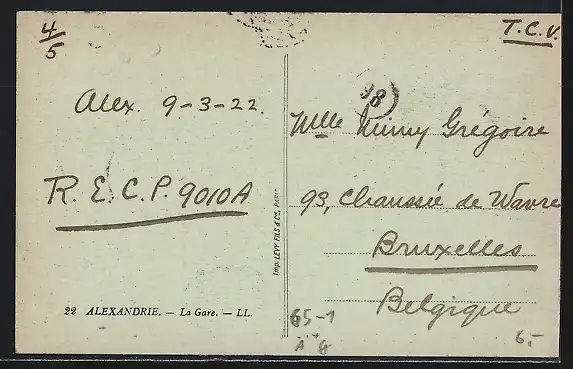 4/5
T.C.V.
98
Alex. 9-3-22.
R.E.C.P. 9010A
Mlle Grégoire
93, Chaussée de Wavre
Bruxelles
Belgique
Imp. LEVY FILS & Cie, PARIS
22 ALEXANDRIE. — La Gare. — LL.
65-1
6.-